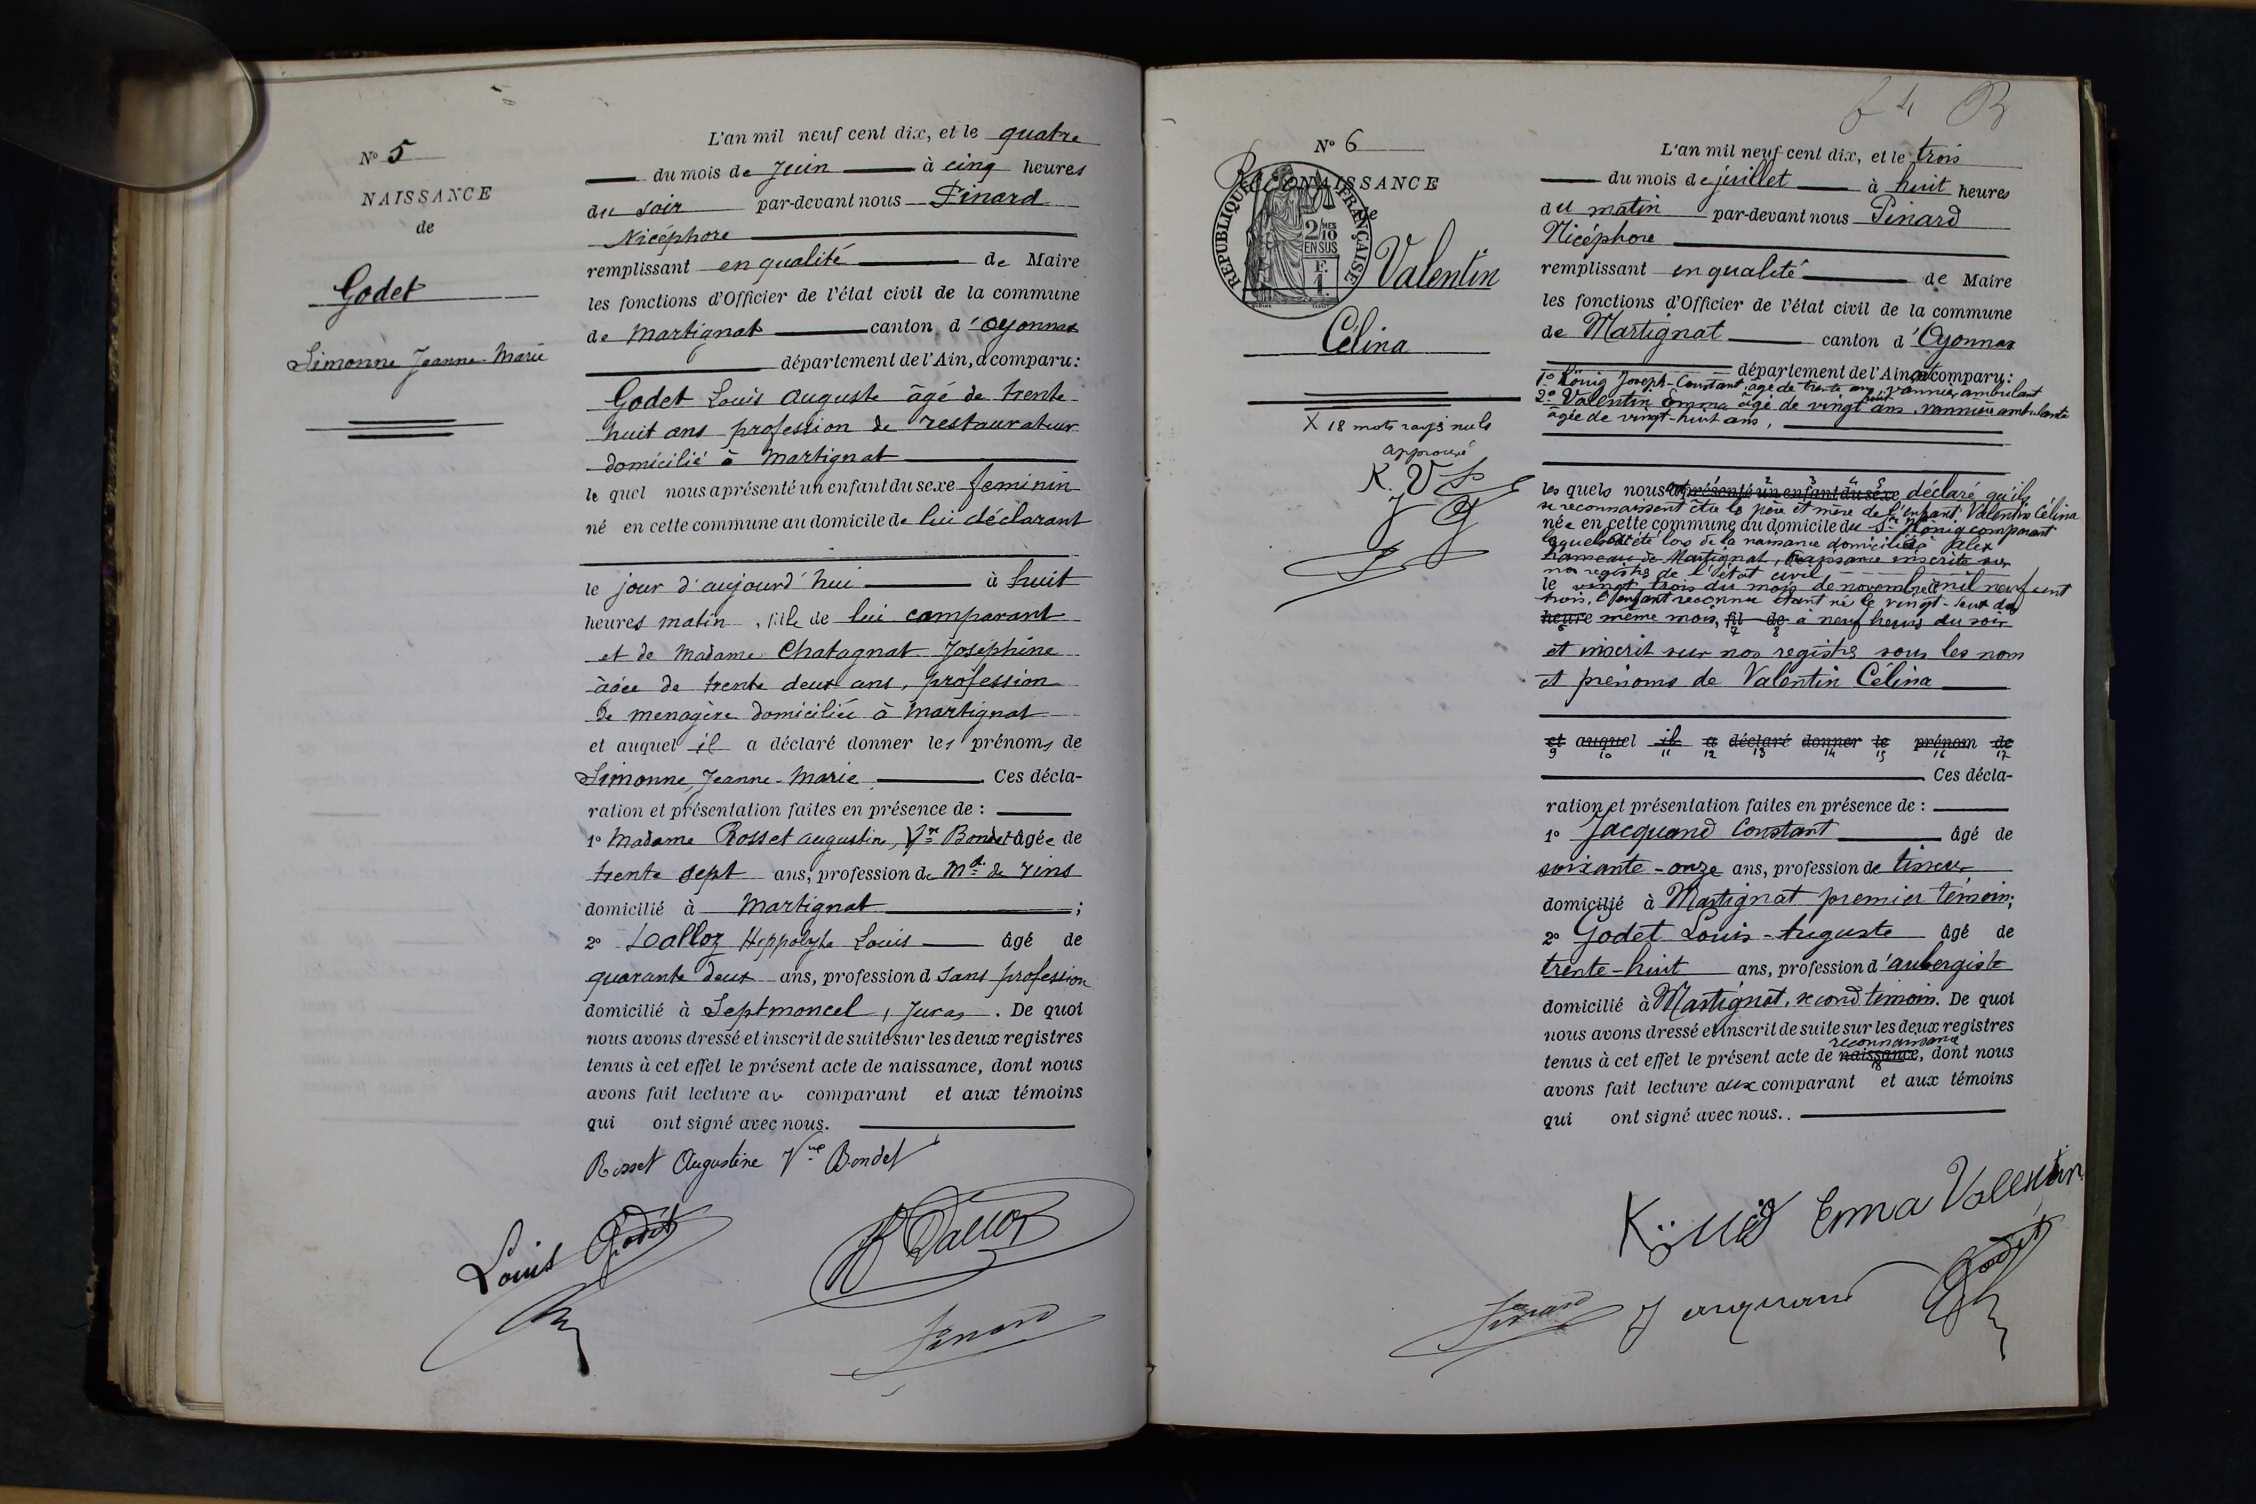 N° 5
NAISSANCE
de
Godet
Simonne Jeanne-Marie
L'an mil neuf cent dix, et le quatre
du mois de Juin à cinq heures
du soir par-devant nous Pinard
Nicéphore
remplissant en qualité de Maire
les fonctions d'Officier de l'état civil de la commune
de Martignat canton d'Oyonnax
département de l'Ain, a comparu:
Godet Louis Auguste âgé de trente
huit ans profession de restaurateur
domicilié à Martignat
le quel nous a présenté un enfant du sexe feminin
né en cette commune au domicile de lui déclarant
le jour d'aujourd'hui à huit
heures matin, fille de lui comparant
et de Madame Chatagnat Joséphine
âgée de trente deux ans, profession
de menagère domiciliée à Martignat
et auquel il a déclaré donner les prénoms de
Simonne, Jeanne-Marie. Ces décla-
ration et présentation faites en présence de :
1° Madame Rosset Augustine, Vve Bondet âgée de
trente sept ans, profession de Mde de vins
domicilié à Martignat ;
2° Dalloz Hippolyte Louis âgé de
quarante deux ans, profession d sans profession
domicilié à Septmoncel, Jura. De quoi
nous avons dressé et inscrit de suite sur les deux registres
tenus à cet effet le présent acte de naissance, dont nous
avons fait lecture au comparant et aux témoins
qui ont signé avec nous.
Rosset Augustine Vve Bondet
Louis Godet
H Dalloz
Pinard
64 B
N° 6
Reconnaissance
de
REPUBLIQUE FRANÇAISE
2/10 MES
EN SUS
F.
1.
Valentin
Célina
X 18 mots rayés nuls
approuvé
K. V P
J G
L'an mil neuf cent dix, et le trois
du mois de juillet à huit heures
du matin par-devant nous Pinard
Nicéphore
remplissant en qualité de Maire
les fonctions d'Officier de l'état civil de la commune
de Martignat canton d'Oyonnax
département de l'Ain, ont comparu:
1° König Joseph-Constant, âgé de trente ans, vannier ambulant
2° Valentin Emma âgée de vingt huit ans, vannière ambulante
âgée de vingt-huit ans,
les quels nous ont présenté un enfant du sexe déclaré qu'ils
se reconnaissent être le père et mère de l'enfant Valentin Célina
née en cette commune au domicile du Sr König comparant
lequel était été lors de la naissance domicilié à Alex
hameau de Martignat, naissance inscrite sur
nos registres de l'état civil
le vingt trois du mois de novembre mil neuf cent
trois, l'enfant reconnu étant né le vingt-deux du
heure même mois, fil de à neuf heures du soir
et inscrit sur nos registres sous les nom
et prénoms de Valentin Célina
et auquel il a déclaré donner le prénom de
9 10 11 12 13 14 15 16 17
Ces décla-
ration et présentation faites en présence de :
1° Jacquand Constant âgé de
soixante-onze ans, profession de tisseur
domicilié à Martignat premier témoin;
2° Godet Louis-Auguste âgé de
trente-huit ans, profession d'aubergiste
domicilié à Martignat, second témoin. De quoi
nous avons dressé et inscrit de suite sur les deux registres
reconnaissance
tenus à cet effet le présent acte de naissance, dont nous
18
avons fait lecture aux comparant et aux témoins
qui ont signé avec nous..
König Emma Valentin
Pinard Jacquand Godet